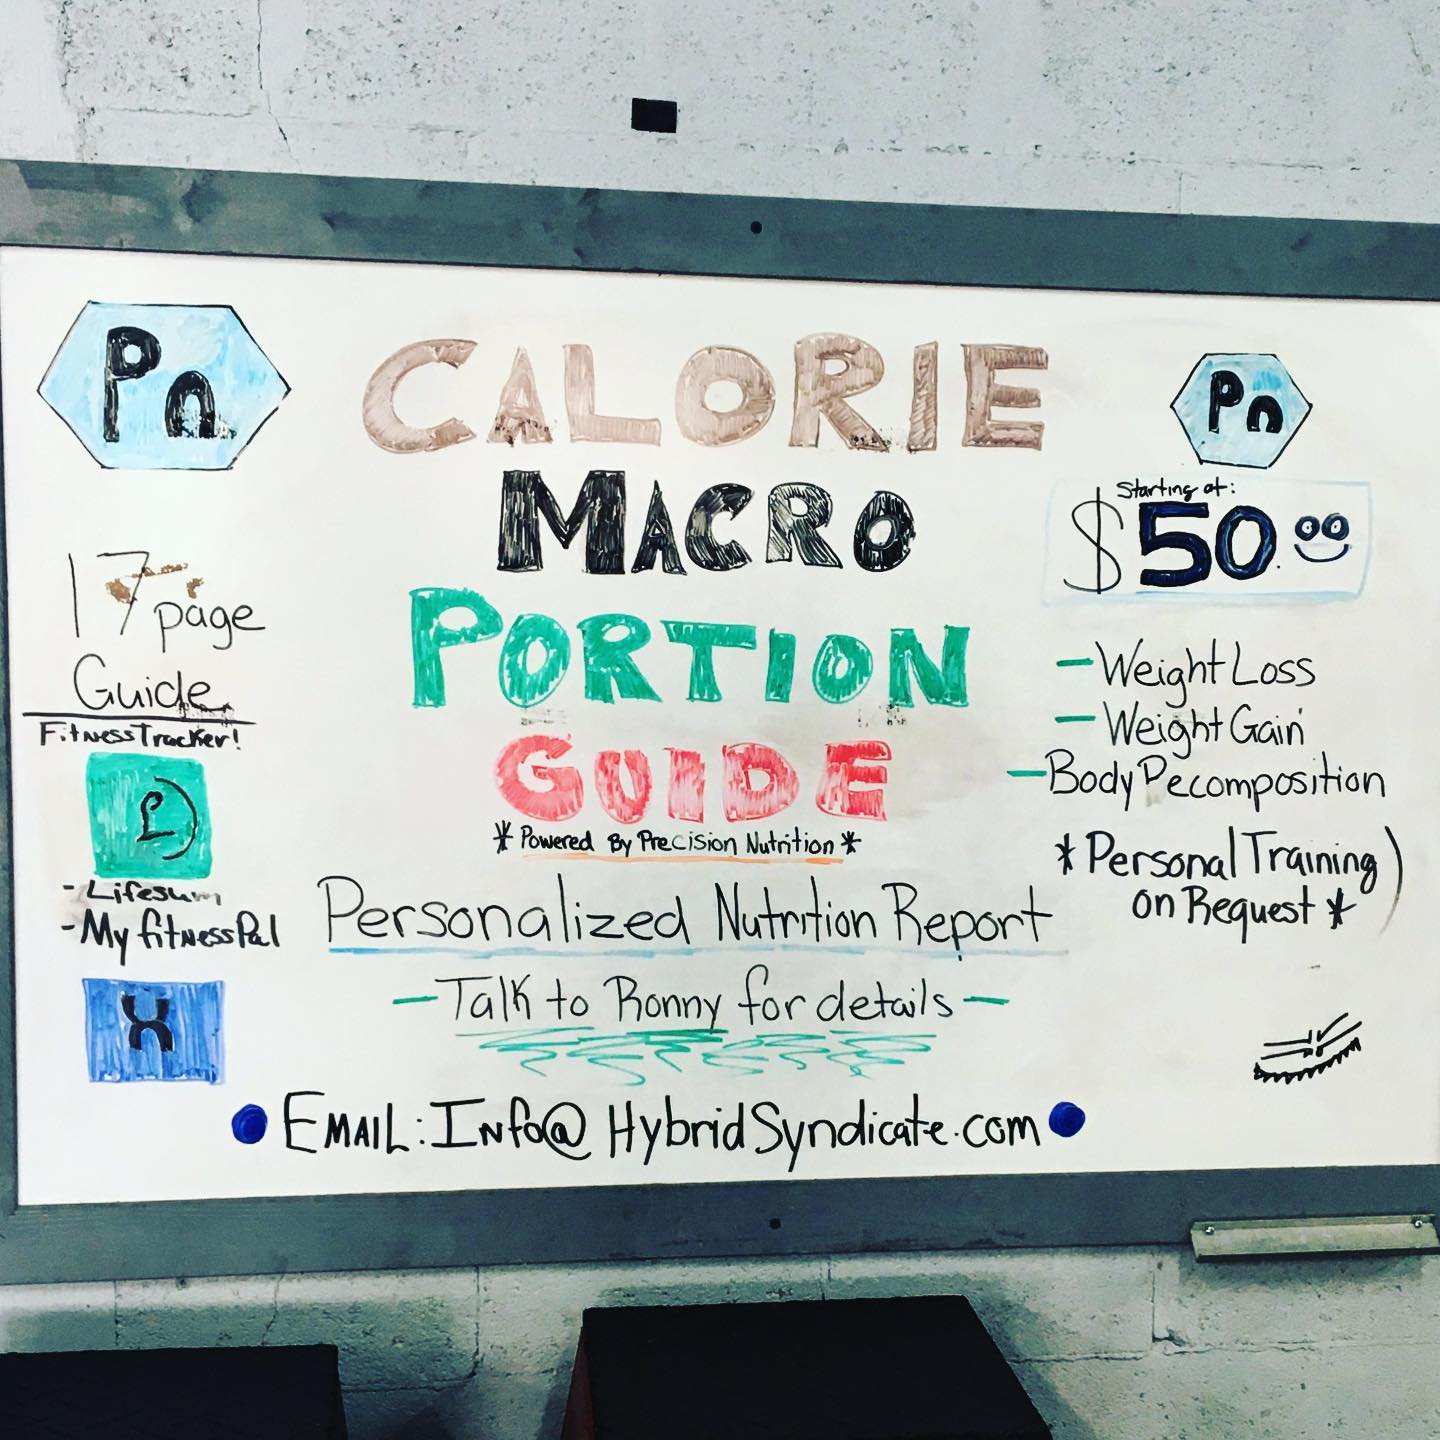 Pn
CALORIE
MACRO
PORTION
GUIDE
* Powered By Precision Nutrition *
Personalized Nutrition Report
- Talk to Ronny for details -
EMAIL: Info@HybridSyndicate.com
17 page
Guide
Fitness Tracker!
L
- Lifesum
- MyfitnessPal
X
Pn
Starting at:
$50.
- Weight Loss
- Weight Gain
- Body Decomposition
* Personal Training
on Request *